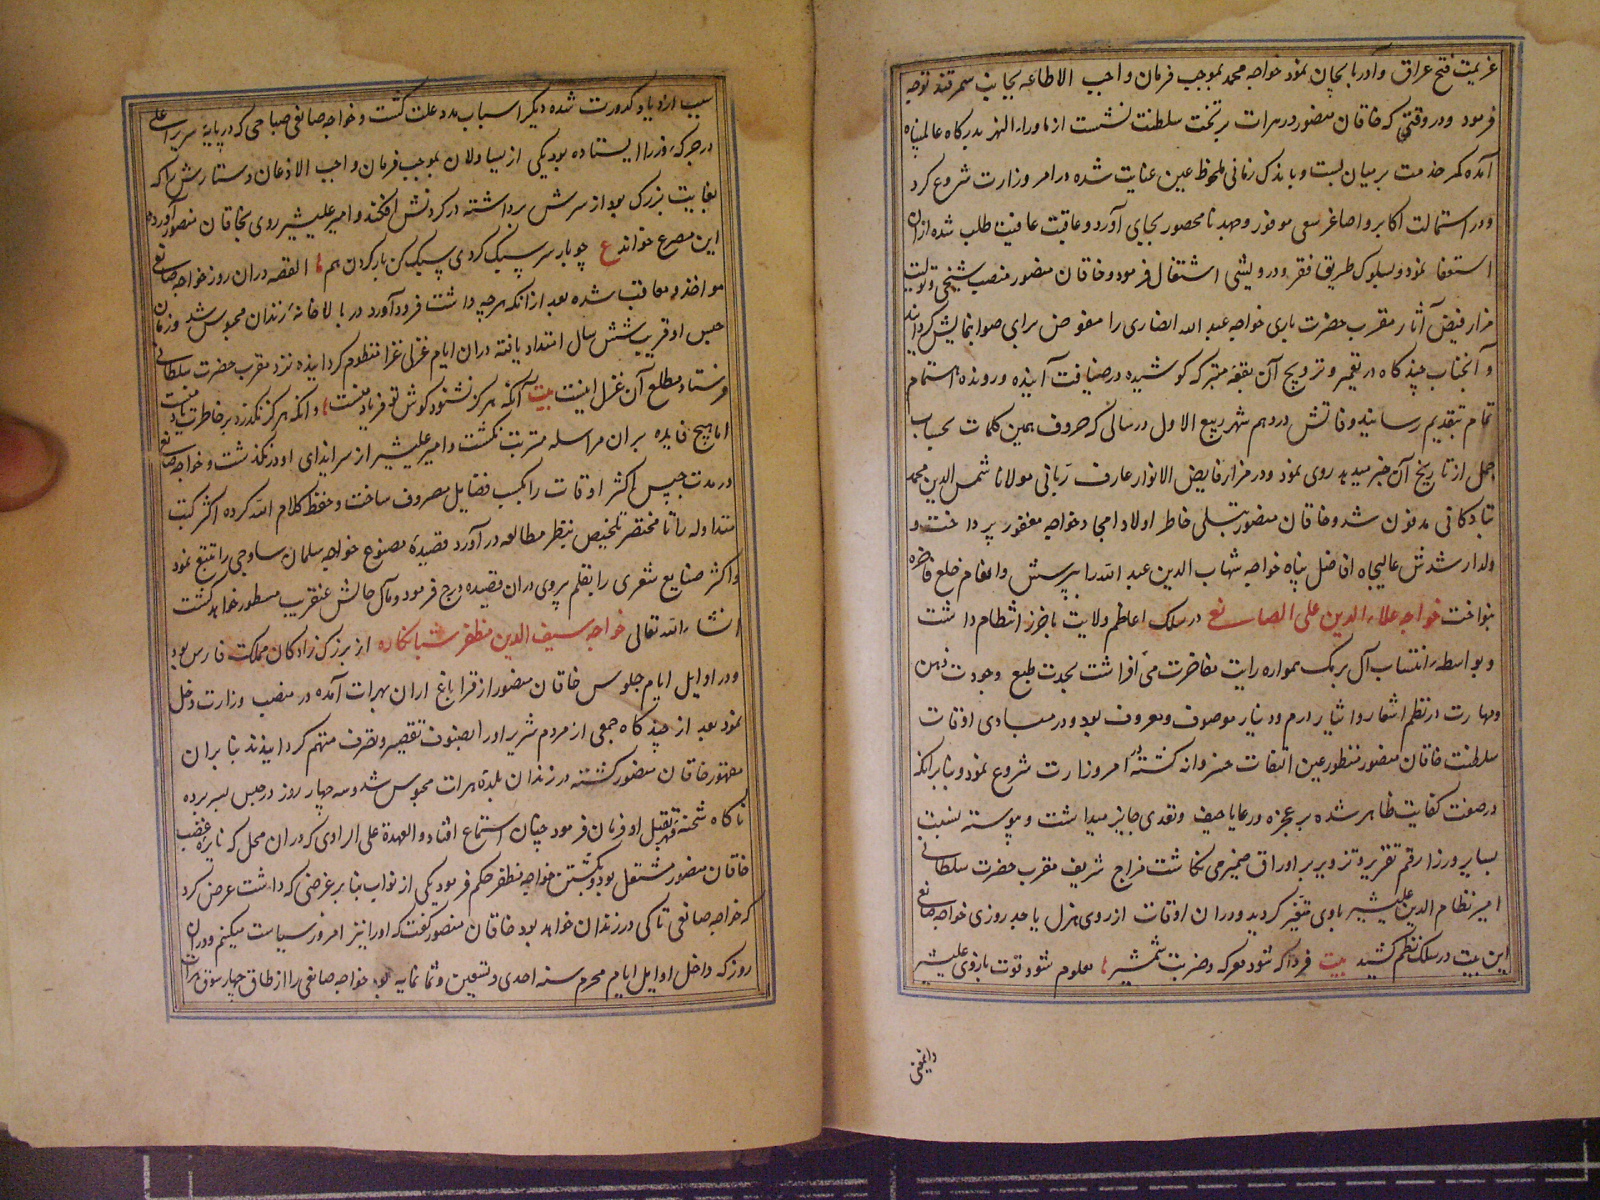 عزیمت فتح عراق و آذربایجان نمود خواجه محمد بموجب فرمان واجب الاطاعه بجانب سمرقند توجه
فرمود و در وقتی که خاقان منصور در هرات بر تخت سلطنت نشست از ماوراء النهر بدرکاه عالمپناه
آمده کمر خدمت بر میان بست و باندک زمانی ملحوظ عین عنایت شده در امر وزارت شروع کرد
و در استمالت اکابر و اصاغر سعی موفور و جهد نامحصور بجای آورد و عاقبت عافیت طلب شده از ان
استعفا نمود و بسلوک طریق فقر و درویشی اشتغال فرمود و خاقان منصور منصب شیخی و تولیت
مزار فیض آثار مقرب حضرت باری خواجه عبد الله انصاری را مفوض برای صوابنمایش کردانید
و آنجناب چندکاه در تعمیر و ترویج آن بقعه متبرکه کوشیده در ضیافت آینده و رونده اهتمام
تمام بتقدیم رسانید وفاتش در دهم شهر ربیع الاول در سالی که حروف همین کلمات بحساب
جمل از تاریخ آن خبر میدهد روی نمود و در مزار فایض الانوار عارف ربانی مولانا شمس الدین محمد
تبادکانی مدفون شد و خاقان منصور بتسلی خاطر اولاد امجاد خواجه مغفور پرداخت و
ولد ارشدش عالیجاه افاضل پناه خواجه شهاب الدین عبد الله را بپرسش و انعام خلع فاخره
بنواخت خواجه علاء الدین علی الصانعی در سلک اعاظم ولایت باخرز انتظام داشت
و بواسطه انتساب آل برمک همواره رایت مفاخرت می افراشت بحدت طبع و جودت ذهن
و مهارت در نظم اشعار و ایثار درم و دینار موصوف و معروف بود و در مبادی اوقات
سلطنت خاقان منصور منظور عین التفات خسروانه کشته در امر وزارت شروع نمود و بنابر آنکه
در صفت کفایت ظاهر شده بر عجزه و رعایا حیف و تعدی جایز میداشت و پیوسته نسبت
بسایر وزرا رقم تقریر و تزویر بر اوراق ضمیر می نکاشت مزاج شریف مقرب حضرت سلطانی
امیر نظام الدین علیشیر باوی متغیر کردید و در ان اوقات از روی هزل یا جد روزی خواجه صانعی
این بیت در سلک نظم کشید بیت فردا که شود معرکه و ضربت شمشیر معلوم شود قوت بازوی علیشیر
و اینمعنی
سبب ازدیاد کدورت شده دیکر اسباب مدد علت کشت و خواجه صانعی صباحی که در پایهٔ سریر اعلی
در جرکهٔ وزرا ایستاده بود یکی از یساولان بموجب فرمان واجب الاذعان دستارش را که
بغایت بزرک بود از سرش برداشته در کردنش افکند و امیر علیشیر روی بخاقان منصور آورده
این مصرع خواند ع چو بار سر سبک کردی سبک کن بار کردن هم القصه در ان روز خواجه صانعی
مواخذ و معاقب شده بعد از آنکه هرچه داشت فرود آورد در بالاخانهٔ زندان محبوس شد و زمان
حبس او قریب شش سال امتداد یافته در ان ایام غزلی غرا منظوم کردانیده نزد مقرب حضرت سلطانی
فرستاد مطلع آن غزل اینست بیت آنکه هرکز نشنود کوش تو فریاد منست و آنکه هرکز نکذرد بر خاطرت یاد منست
اما هیچ فایده بر ان مراسله مترتب نکشت و امیر علیشیر از سر ایذای او درنکذشت و خواجه صانعی
در مدت حبس اکثر اوقات را بکسب فضایل مصروف ساخت و حفظ کلام الله کرده اکثر کتب
متداوله را تا مختصر تلخیص بنظر مطالعه درآورد قصیدهٔ مصنوع خواجه سلمان ساوجی را تتبع نمود
و اکثر صنایع شعری را بقلم پیروی در ان قصیده درج فرمود و مآل حالش عنقریب مسطور خواهد کشت
انشاء الله تعالی خواجه سیف الدین مظفر شبانکاره از بزرک زادکان مملکت فارس بود
و در اوایل ایام جلوس خاقان منصور از قراباغ اران بهرات آمده در منصب وزارت دخل
نمود بعد از چند کاه جمعی از مردم شریر او را بصنوف تقصیر و تصرف متهم کردانیدند بنابران
مقهور خاقان منصور کشته در زندان بلدهٔ هرات محبوس شد و سه چهار روز در حبس بسر برده
ناکاه شحنهٔ قهر بقتل او فرمان فرمود چنان استماع افتاد و العهدة علی الراوی که در ان محل که نایرهٔ غضب
خاقان منصور مشتعل بود و بکشتن خواجه مظفر حکم فرمود یکی از نواب بنابر غرضی که داشت عرض کرد
که خواجه صانعی تا کی در زندان خواهد بود خاقان منصور کفت که او را نیز امروز سیاست میکنم و در ان
روز که داخل اوایل ایام محرم سنه احدی و تسعین و ثمانمایه بود خواجه صانعی را از طاق چهار سوق هرات